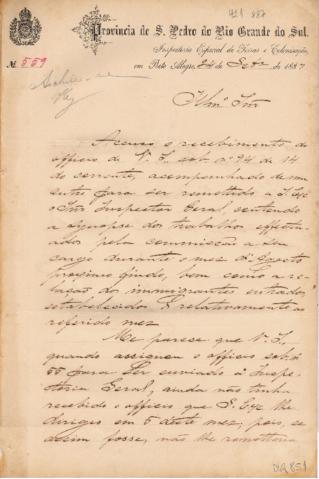 421 887
Provincia de S. Pedro do Rio Grande do Sul.
Inspetoria Especial de Terras e Colonisação,
Nº 559
em Porto Alegre, 24 de Setbro de 1887
Archive-se
Illmo Snr
Accuso o recebimento do
officio de V. S. sob nº 74 de 14
do corrente, acompanhado de um
outro para ser remettido a S. Exc
o Snr Inspector Geral, contendo
a synopse dos trabalhos effectu-
ados pela commissão a seu
cargo durante o mez d'Agosto
proximo findo, bem como a re-
lação dos immigrantes entrados,
estabelecidos &, relativamente ao
referido mez.
Me parece que V. S.,
quando assignou o officio sob nº
55 para ser enviado á Inspe-
ctoria Geral, ainda não tinha
recebido o officio que S. Exc lhe
dirigio em 5 deste mez, pois, se
assim fosse, não lhe remetteria